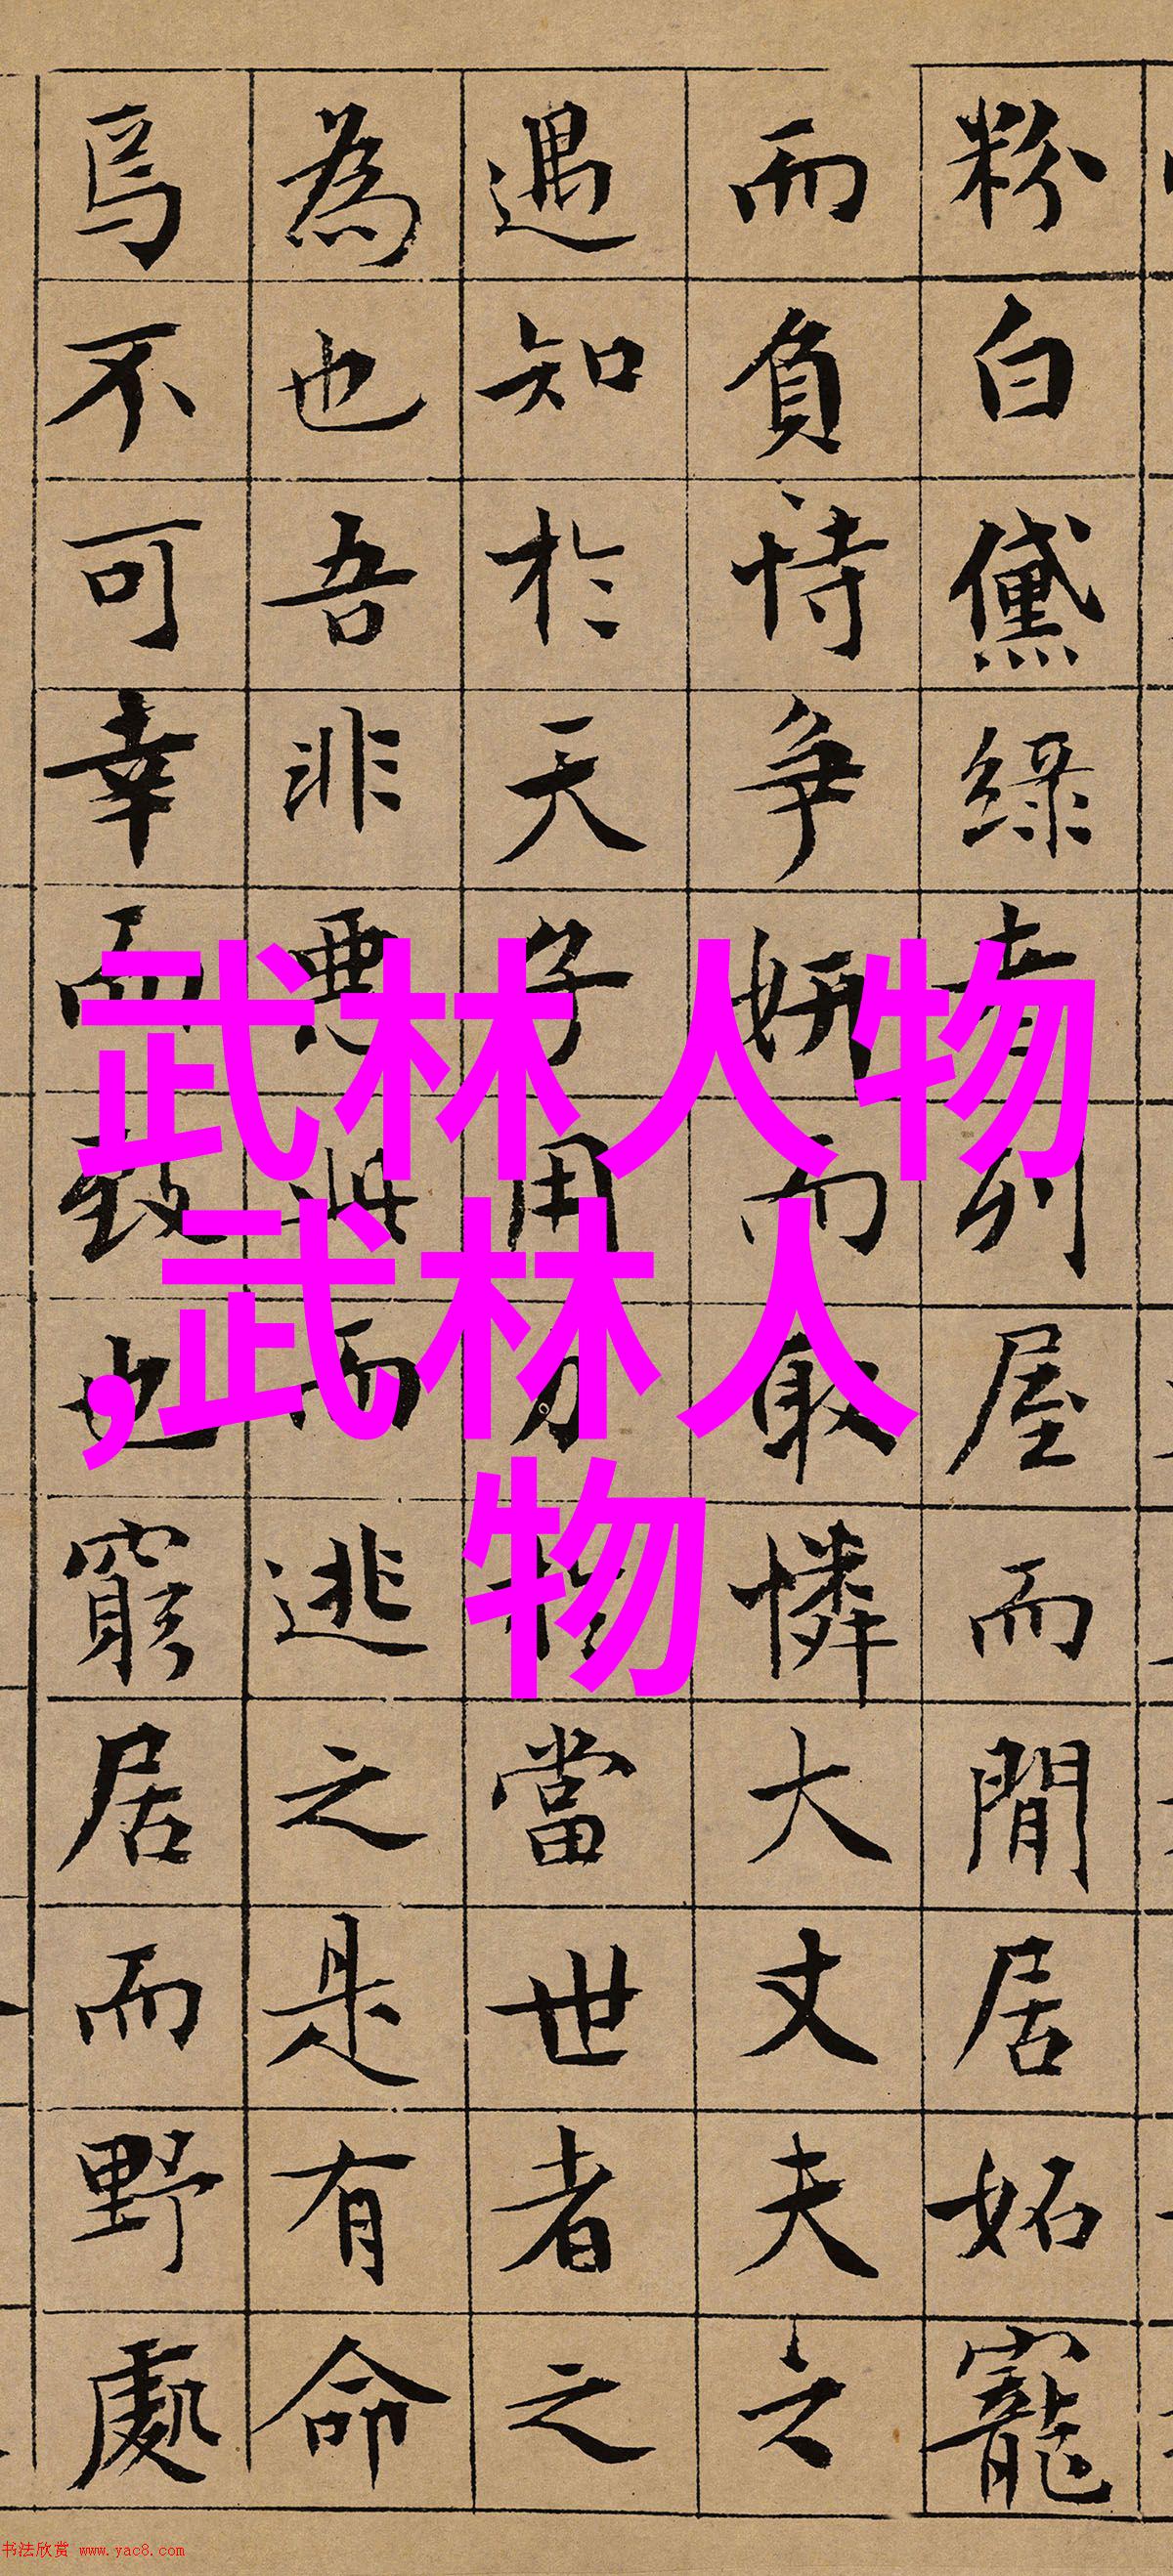 粉白黛綠者列屋而閒居妬寵
而負恃爭妍而取憐大丈夫之
遇知於天子用力於當世者之
為也吾非惡此而逃之是有命
焉不可幸而致也窮居而野處
武林人物
,武林人
物
书法欣赏 www.yac8.com